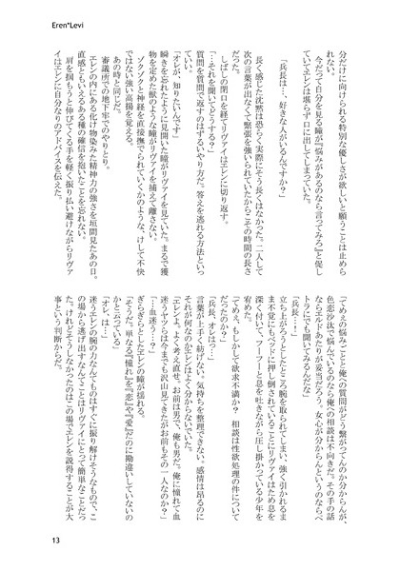 Eren*Levi
分だけに向けられる特別な優しさが欲しいと願うことは止めら
れない。
今だって自分を見る瞳が『悩みがあるのなら言ってみろ』と促し
ていてエレンは堪らず口に出してしまっていた。
「兵長は…、好きな人がいるんですか？」
長く感じた沈黙は恐らく実際にそう長くはなかった。二人して
次の言葉が出なくて緊張を強いられていたからこその時間の長さ
だった。
しばしの閉口を経てリヴァイはエレンに切り返す。
「…それを聞いてどうする？」
質問を質問で返すのはずるいやり方だ。答えを逃れる方法とい
って。
「オレが、知りたいんです」
瞬きを忘れたように見開いた瞳がリヴァイを見ていた。まるで獲
物を定めた獣のような瞳がリヴァイを捕えて離さない。
ゾクゾクと神経を直接撫でられていくかのような、けして不快
ではない強い高揚を覚える。
あの時と同じだ。
審議所での地下牢でのやりとり。
エレンの内にある化け物染みた精神力の強さを垣間見たあの日。
直感ともいえるある種の確信を抱いたことを忘れない。
肩を掴もうと伸びてくる手を軽く振り払い避けながらリヴァ
イはエレンに自分なりのアドバイスを伝えた。
「てめぇの悩みごとと俺への質問がどう繋がってんのか分からんが、
色恋沙汰で悩んでいるのなら俺への相談は不向きだ。その手の話
ならエルドあたりが妥当だろう。女心が分からんというのならペ
トラにでも聞いてみるんだな」
「兵長…！」
立ち上がろうとしたところ腕を取られてしまい、強く引かれるま
ま不覚にもベッドに押し倒されていることにリヴァイはため息を
深く付いて、フーフーと息を吐きながら圧し掛かっている少年を
宥めた。
「てめえ、もしかして欲求不満か？　相談は性欲処理の件について
だったのか？」
「兵長、オレはっ…」
言葉が上手く紡げない。気持ちを整理できない。感情は昂るのに
それが何なのかエレンはよく分からないでいた。
「エレンよ、よく考え直せ。お前は男で、俺も男だ。俺に憧れて血
迷うヤツらは今までも沢山見てきたがお前もその一人なのか？」
「…血迷う…？」
ぎらぎらとしたエレンの瞳が揺れる。
「そうだ。単なる『憧れ』を『恋』や『愛』だのに勘違いしていないの
かと云っている」
「オレ、は…」
迷うエレンの腕の力なんてものはすぐに振り解けそうなもので、こ
の場から逃げ出すなんてことはリヴァイにとって簡単なことだっ
た。けれどそうしなかったのはこの場でエレンを説得することが大
事という判断からだ。
13